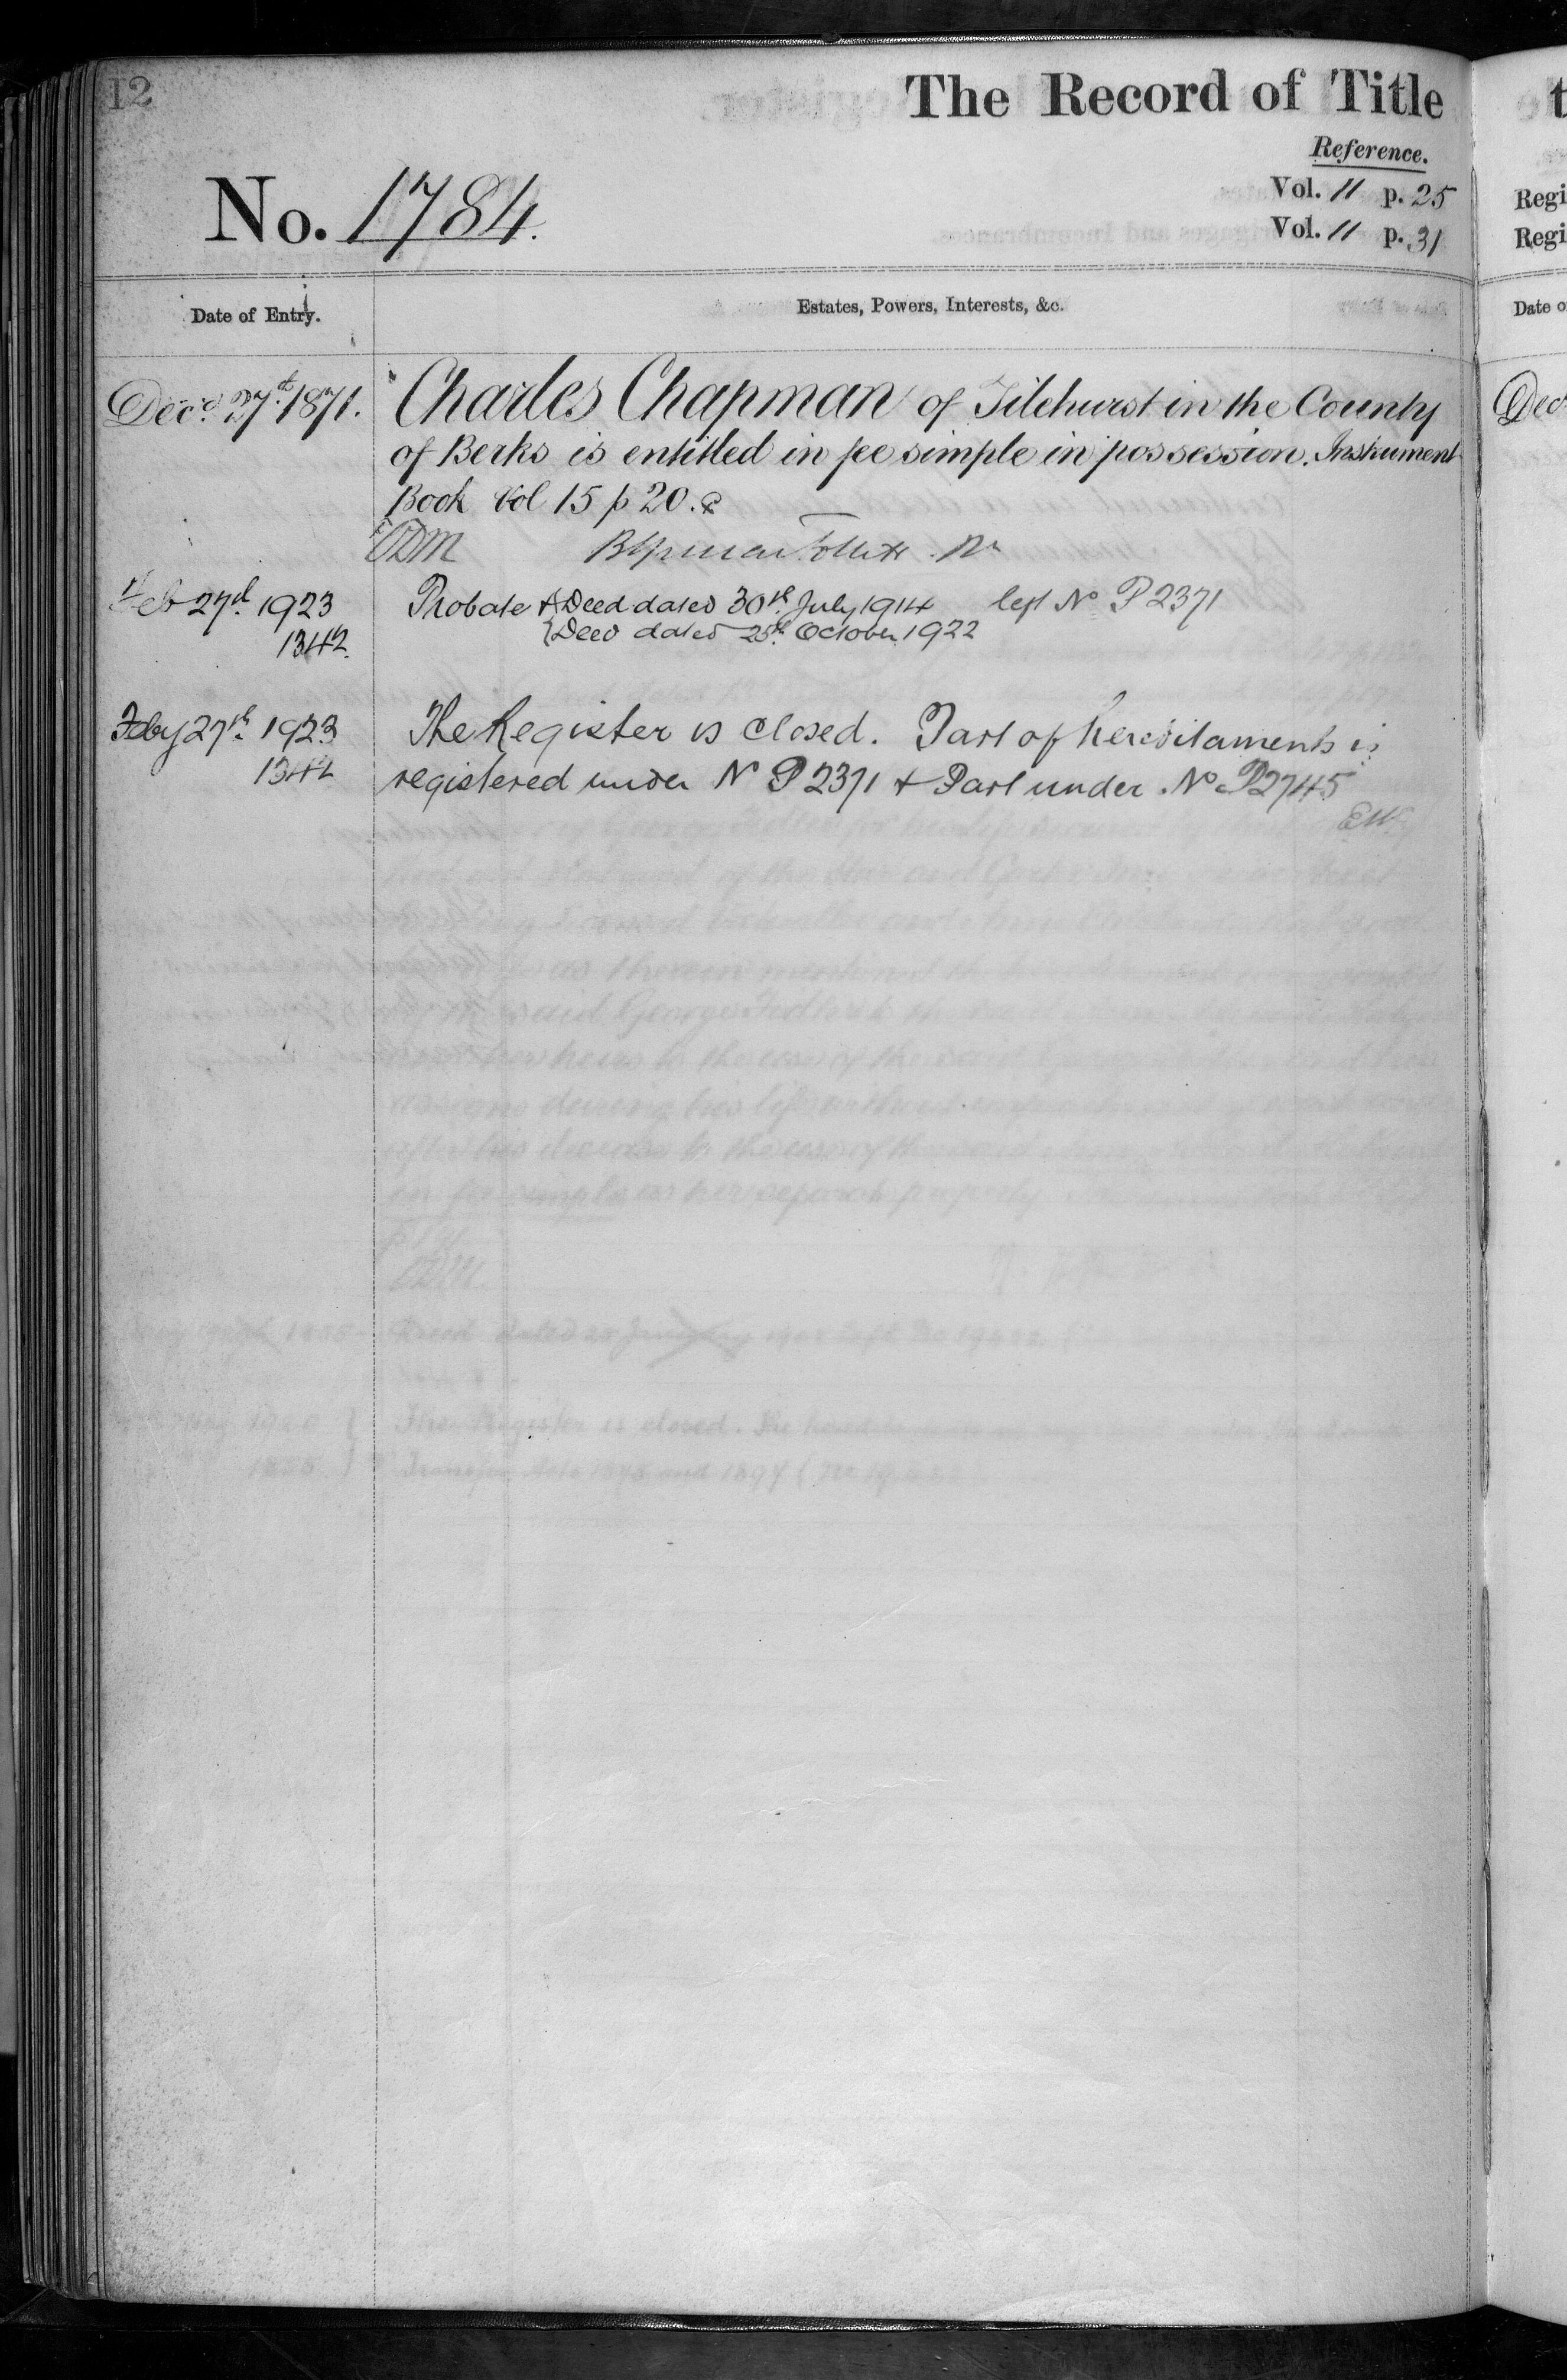 12
The Record of Title
Reference.
No. 1784.
Vol. 11 p. 25
Vol. 11 p. 31
Regi
Regi
Date of Entry.
Estates, Powers, Interests, &c.
Date o
Decr 27th 1871.
Charles Chapman of Tilehurst in the County
Dec
of Berks is entitled in fee simple in possession. Instrument
Book Vol 15 p 20.
Follett
Feb 27th 1923
Probate & Deed dated 30th July 1914 left No P2371
1342.
Deed dated 25th October 1922
Feby 27th 1923
The Register is closed. Part of hereditaments is
1342
registered under No P2371 & Part under No P2745
EW.